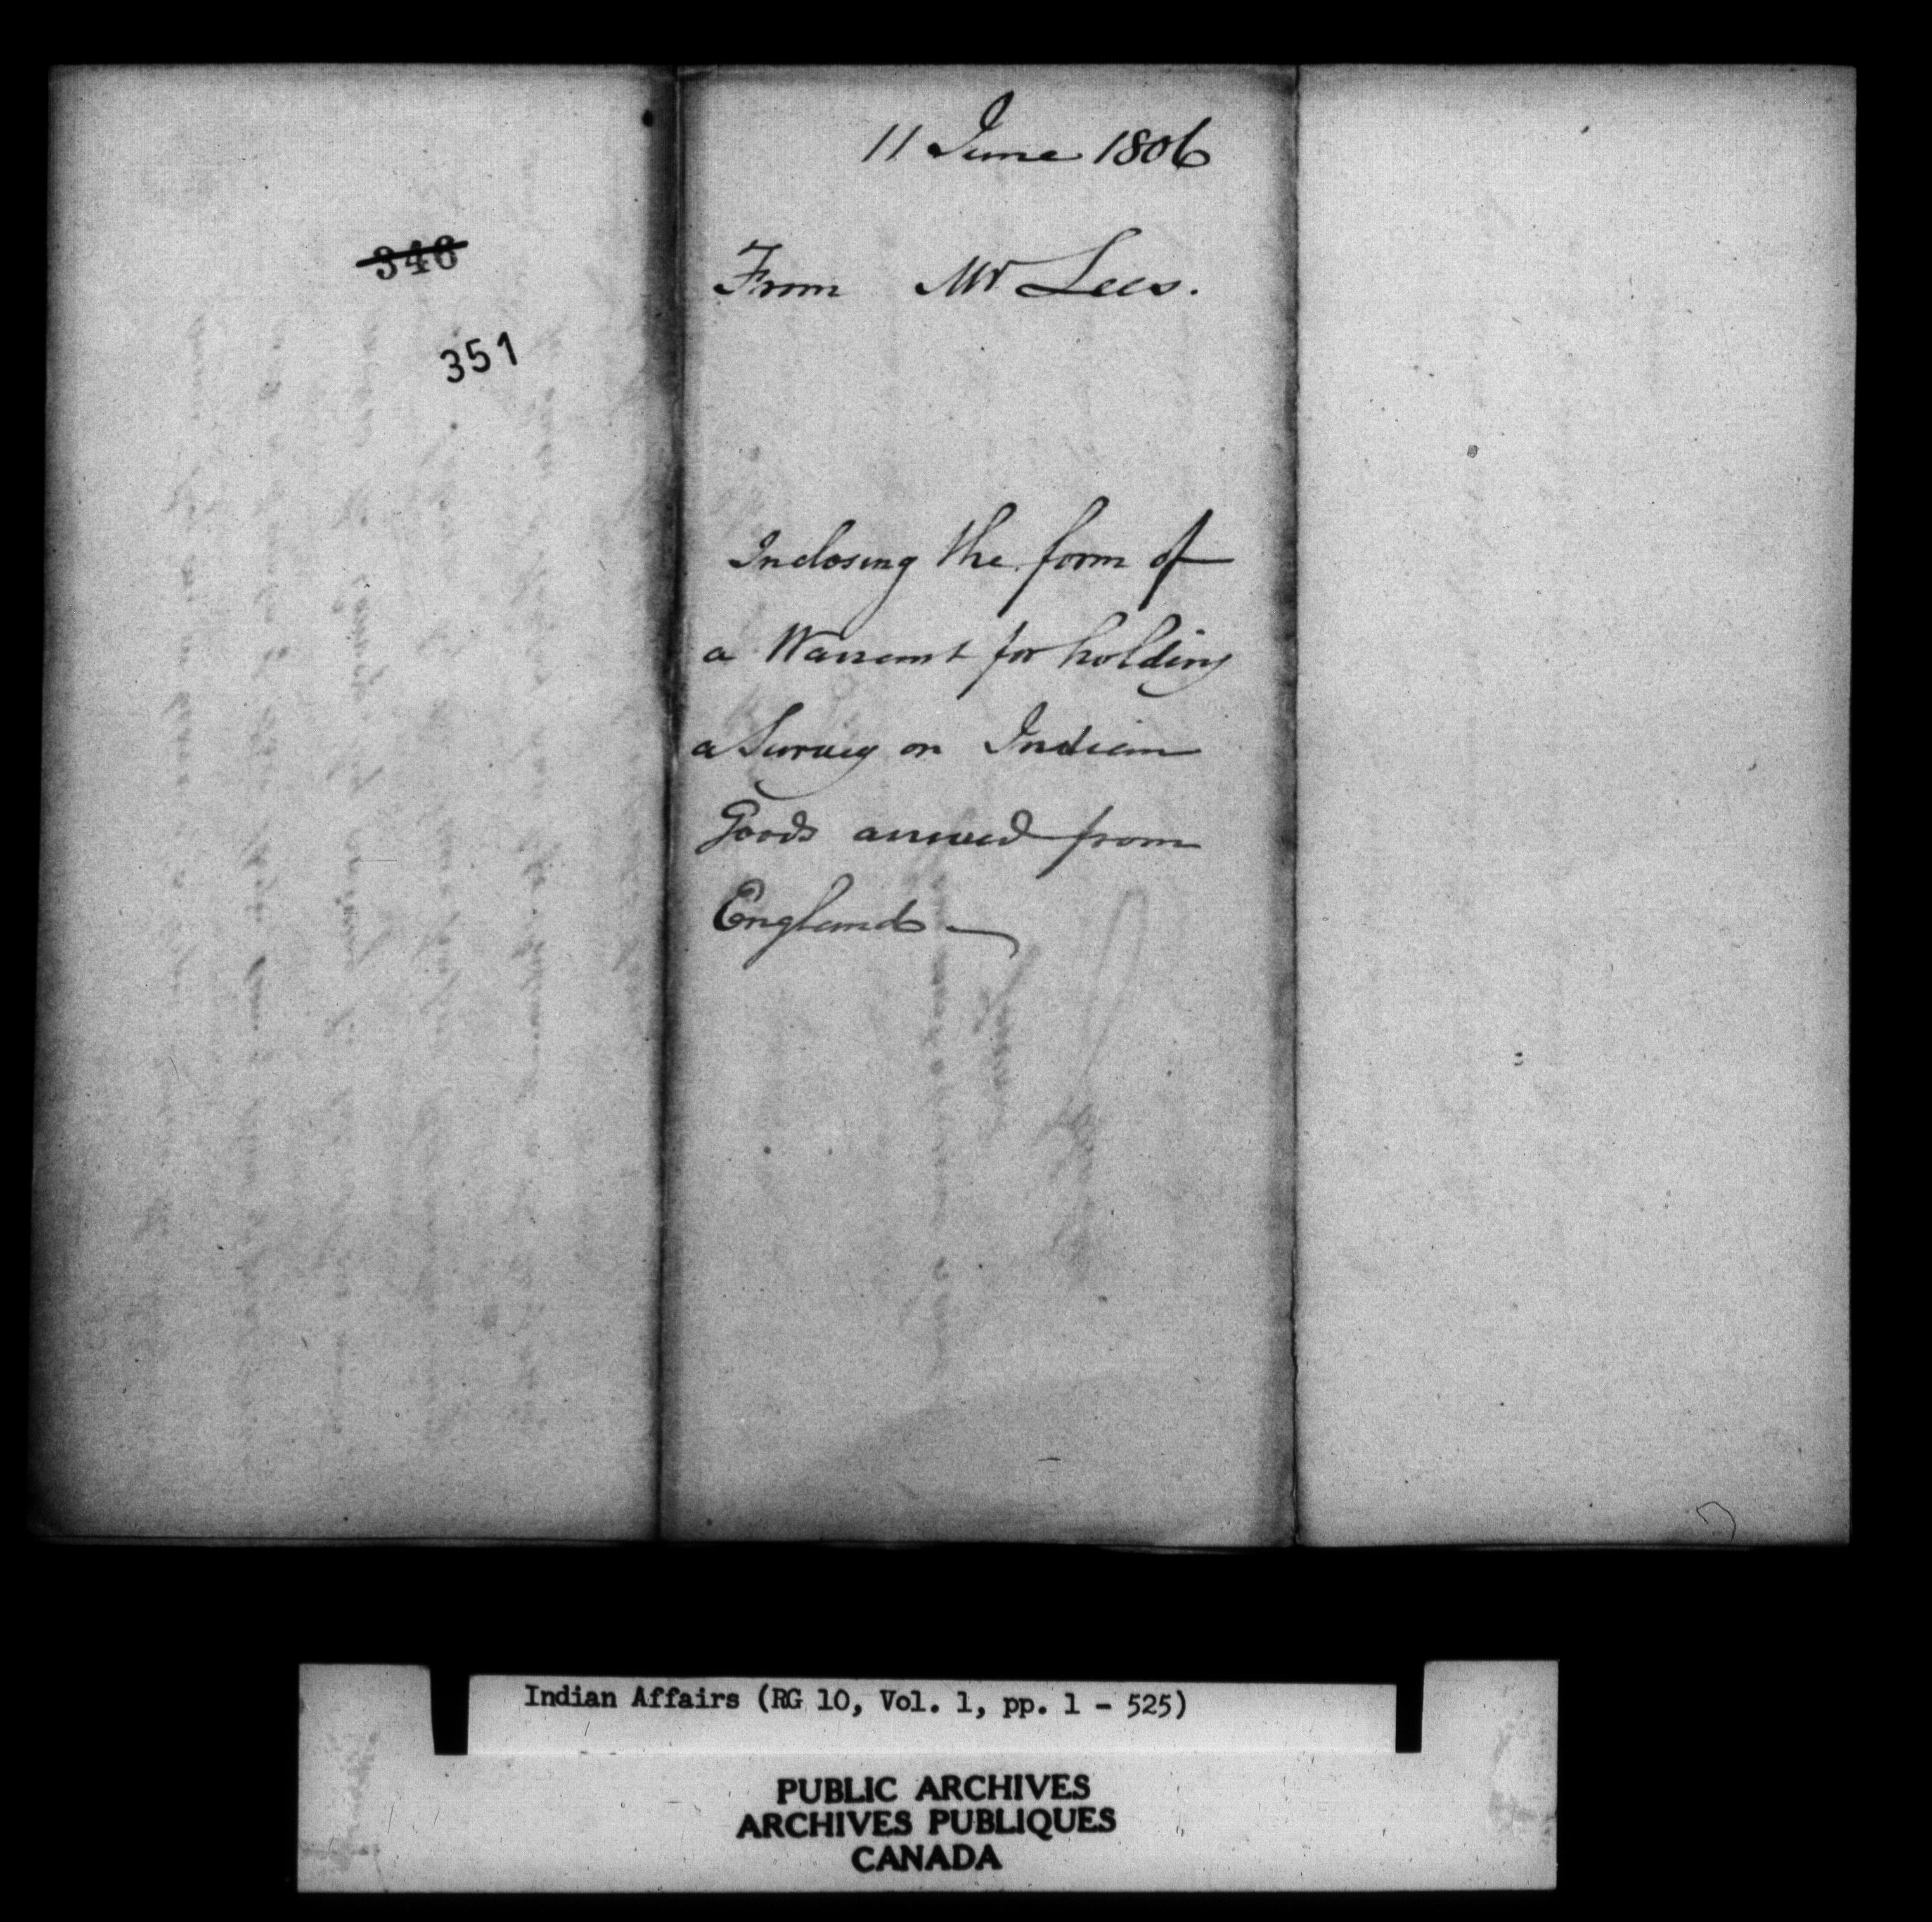 11 June 1806
From Mr Lees.
346
351
Inclosing the form of
a Warrant for holding
a Survey on Indian
Goods arrived from
England
Indian Affairs (RG 10, Vol. 1, pp. 1 - 525)
PUBLIC ARCHIVES
ARCHIVES PUBLIQUES
CANADA